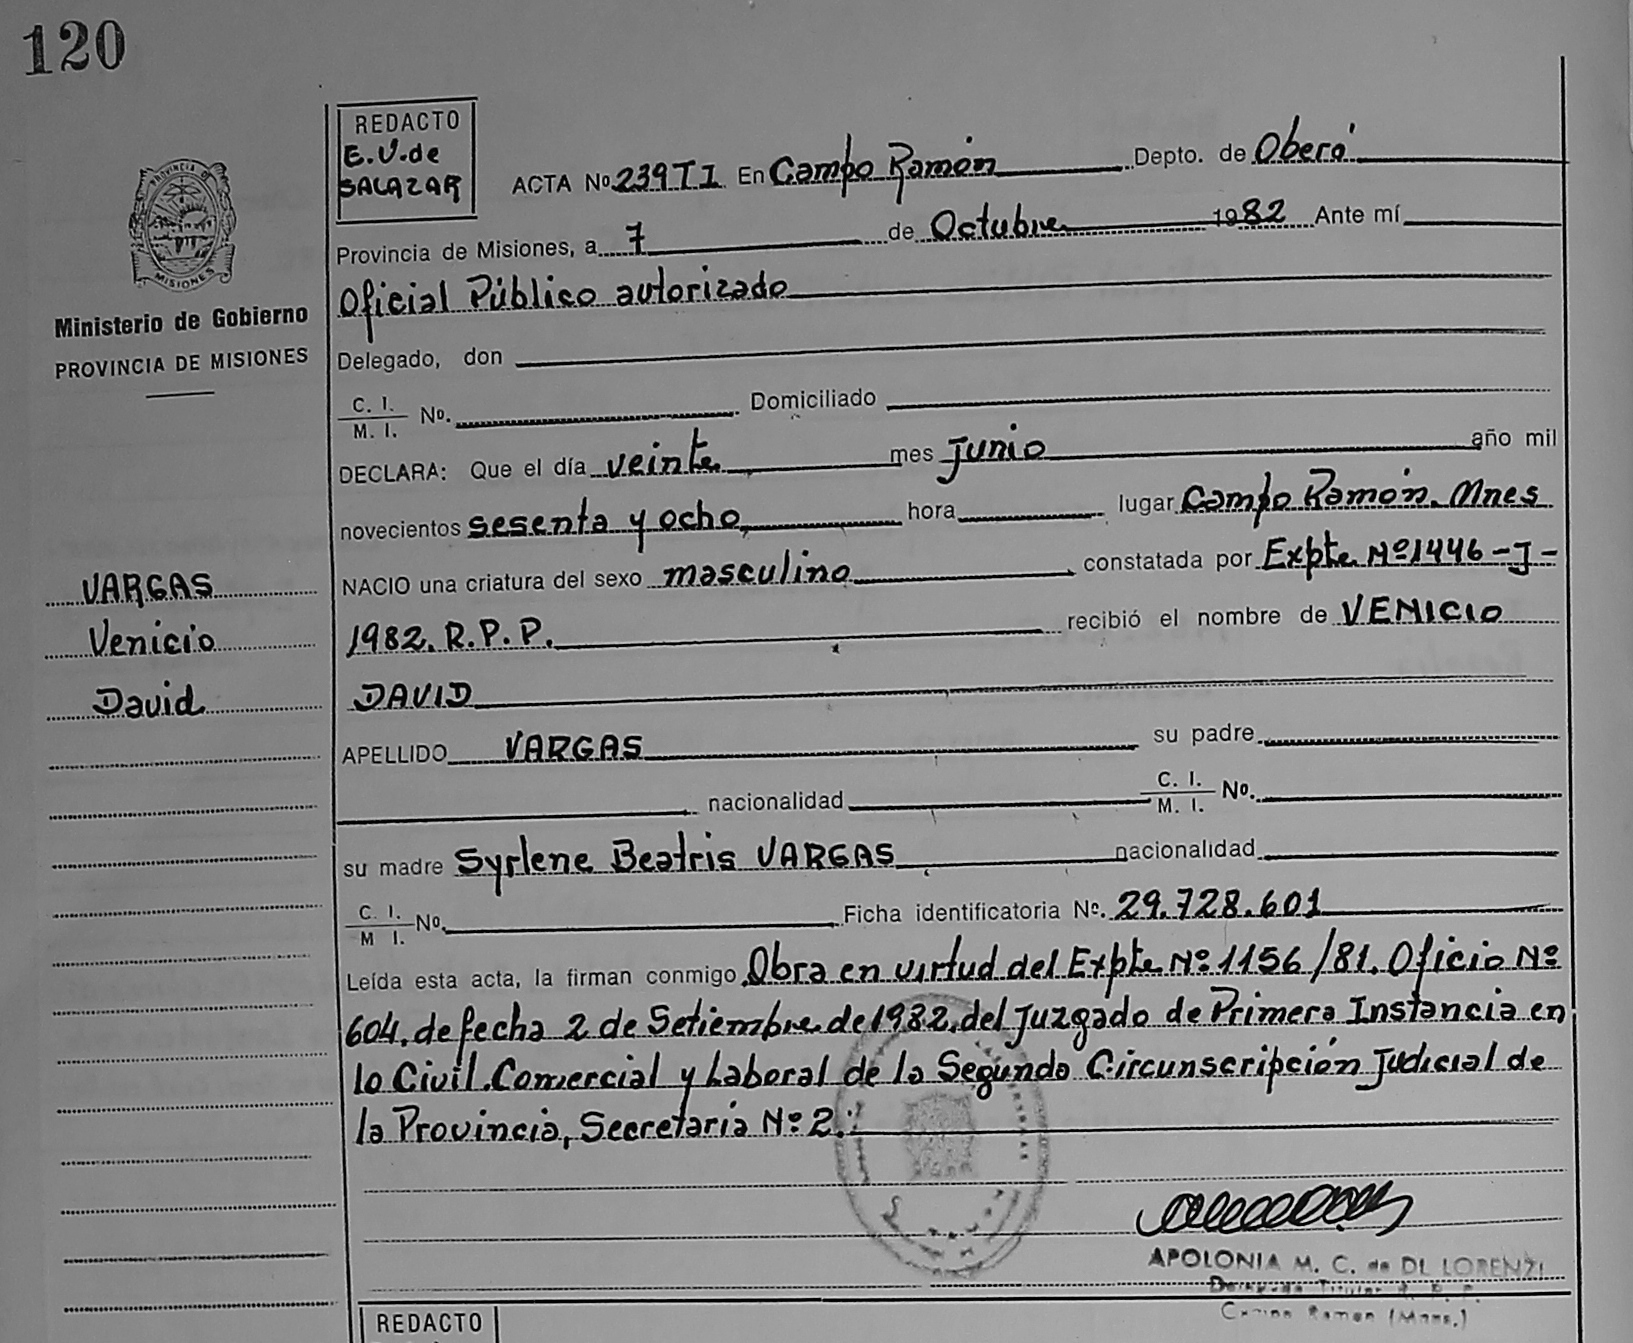 120
REDACTO
E.V. de
SALAZAR
ACTA Nº 239TI En Campo Ramón Depto. de Oberá
Provincia de Misiones, a 7 de Octubre 1982 Ante mí
Oficial Público autorizado
PROVINCIA DE
MISIONES
Ministerio de Gobierno
PROVINCIA DE MISIONES
Delegado, don
C. I.
M. I. Nº. Domiciliado
DECLARA: Que el día veinte mes Junio año mil
novecientos sesenta y ocho, hora lugar Campo Ramón. Mnes
NACIO una criatura del sexo masculino constatada por Expte Nº 1446-J-
1982. R.P.P. recibió el nombre de VENICIO
DAVID
VARGAS
Venicio
David
APELLIDO VARGAS su padre
nacionalidad C. I.
M. I. Nº.
su madre Syrlene Beatris VARGAS nacionalidad
C. I.
M I. Nº. Ficha identificatoria Nº. 29.728.601
Leída esta acta, la firman conmigo Obra en virtud del Expte Nº 1156/81. Oficio Nº
604. de fecha 2 de Setiembre de 1982. del Juzgado de Primera Instancia en
lo Civil. Comercial y Laboral de la Segunda Circunscripción Judicial de
la Provincia, Secretaria Nº 2.
APOLONIA M. C. de DI LORENZI
Campo Ramon (Mnes.)
REDACTO